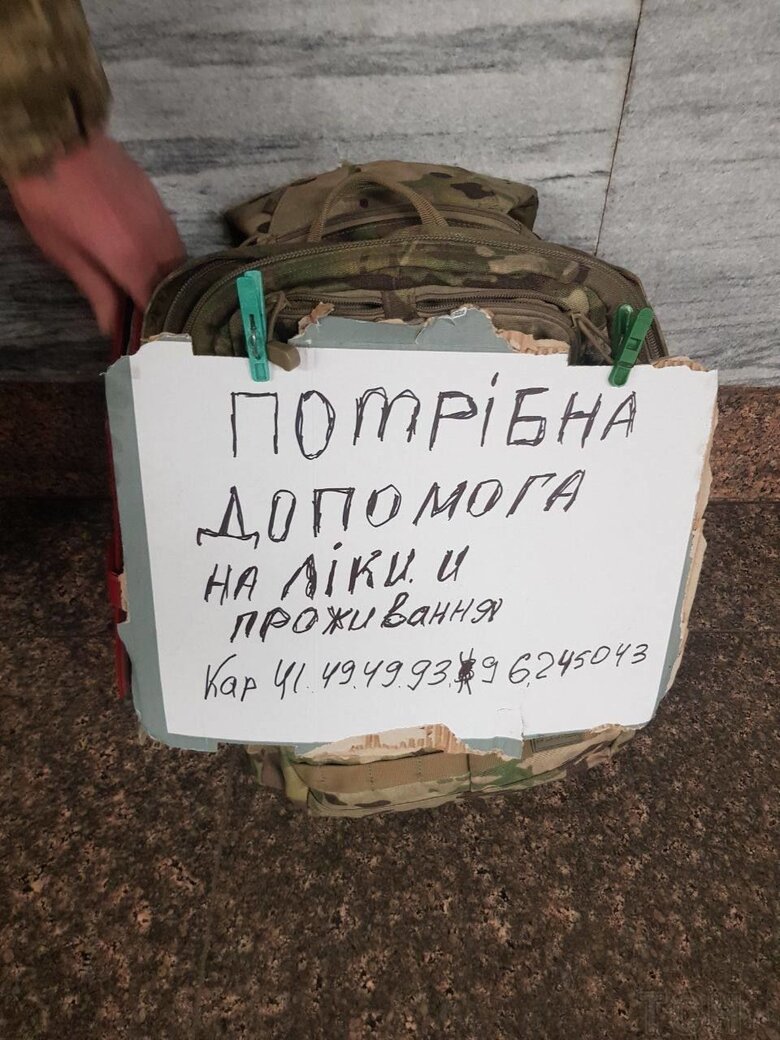 ПОТРІБНА
ДОПОМОГА
НА ЛІКИ. И
ПРОЖИВАННЯ
Кар 41.49.49.93.96,245043
ТСН